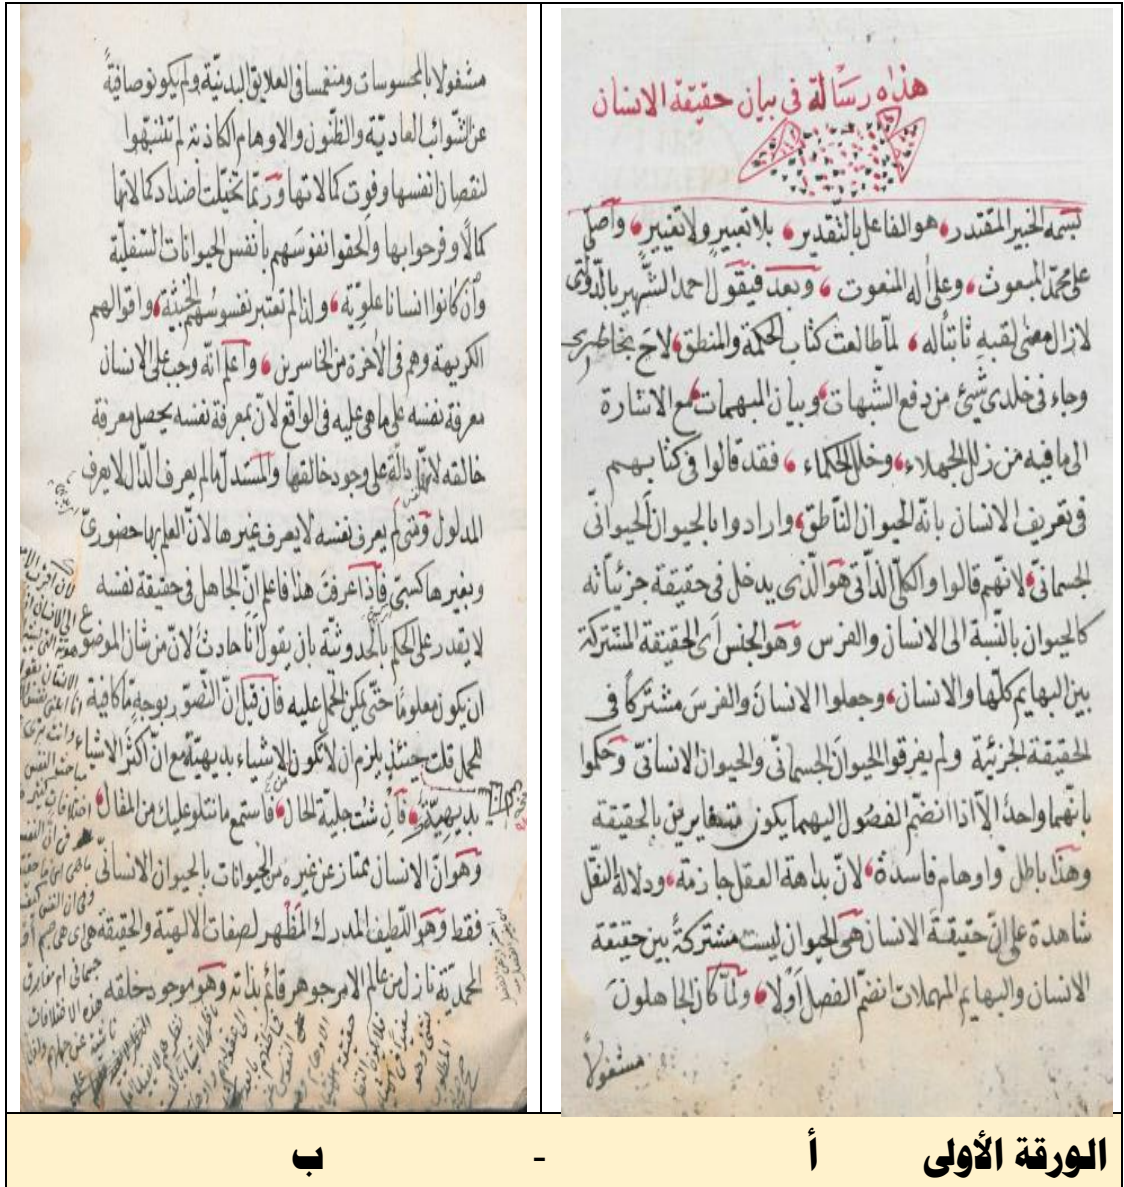 هذه رسالة في بيان حقيقة الانسان
بسمه الخبير المقتدر هو الفاعل بالتقدير بلا تعبير ولا تغيير واصلي
على محمد المبعوث وعلى اله المنعوت وبعد فيقول احمد الشهير بالدلولى
لازال معنى لقبه ثابتا له لما طالعت كتاب الحكمة والمنطق لاح بخاطري
وجاء في خلدى شيئ من دفع الشبهات وبيان المبهمات مع الاشارة
الى ما فيه من زلل الجهلاء وخلل الحكماء فقد قالوا في كتابهم
في تعريف الانسان بانه الحيوان الناطق وارادوا بالحيوان الحيوانّى
الجسمانّى لانهم قالوا والكلى الذاتى هو الذى يدخل في حقيقة جزئياته
كالحيوان بالنسبة الى الانسان والفرس وهو الجنس اى الحقيقة المشتركة
بين البهايم كلها والانسان وجعلوا الانسان والفرس مشتركاً في
الحقيقة الجزئية ولم يفرقوا الحيوان الجسمانّى والحيوان الانسانّى وحكموا
بانهما واحد الا اذا انضم الفصول اليهما يكون متغايرين بالحقيقة
وهذا باطل واوهام فاسدة لان بداهة العقل جازمة ودلالة النقل
شاهدة على ان حقيقة الانسان هي الحيوان ليست مشتركة بين حقيقة
الانسان والبهايم المهملات انضم الفصل اولا ولما كان الجاهلون
مشغولاً
مشغولا بالمحسوسات ومنغمسا في العلايق البدنية ولم يكونو صافيةً
عن الشوائب العادية والظنون والاوهام الكاذبة لم تتنبهوا
لنقصان انفسها وفوت كمالاتها وربما تخيلت اضداد كمالاتها
كمالًا وفرحوا بها والحقوا نفوسهم بانفس الحيوانات السفلية
وان كانوا انسانا علوية واذا لم تعتبر نفوسهم الخبيثة واقوالهم
الكريهة وهم في الاخرة من الخاسرين واعلم انه وجب على الانسان
معرفة نفسه على ما هي عليه في الواقع لان بمعرفة نفسه يحصل معرفة
خالقه لانها دالّة على وجود خالقها والمستدل ما لم يعرف الدال لا يعرف
المدلول ومتى لم يعرف نفسه لا يعرف غيرها لان العلم بها حضورىّ
وبغيرها كسبى فاذا عرفت هذا فاعلم ان الجاهل في حقيقة نفسه
لا يقدر على الحكم بالحدوثية بان يقول انا حادث لان من شان الموضوع
ان يكون معلومًا حتى يمكن الحمل عليه فان قيل ان التصور بوجه ما كافية
للحمل قلت حينئذ يلزم ان لا تكون الاشياء بديهيّة مع ان اكثر الاشياء
بديهيّة فان شئت جلية الحال فاستمع ما نتلو عليك من المقال
وهو ان الانسان يمتاز عن غيره من الحيوانات بالحيوان الانسانّى
فقط وهو اللطيف المدرك المظهر لصفات الالهية والحقيقة
المحمدية نازل من عالم الامر جوهر قائم بذاته وهو موجود خلقه
الورقة الأولى أ - ب